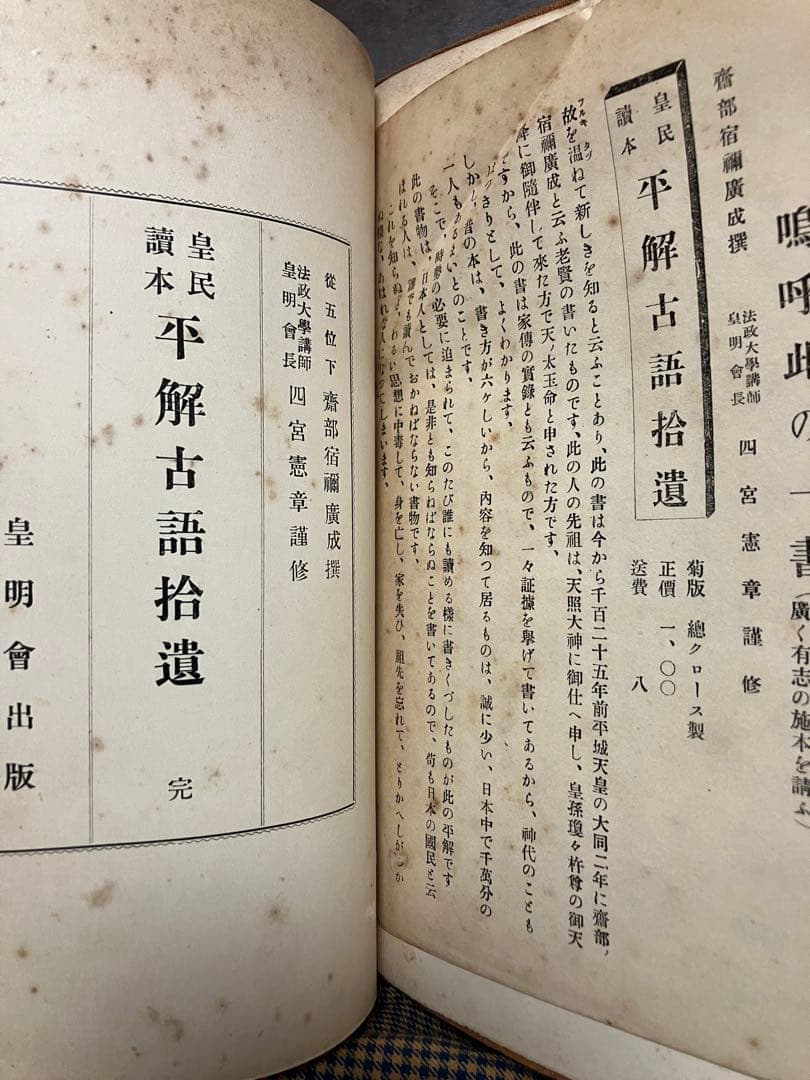 嗚呼此の一書（廣く有志の施本を請ふ）
齋部宿禰廣成撰
法政大學講師
皇明會長
四宮憲章謹修
皇民
讀本
平解古語拾遺
菊版 總クロース製
正價 一、〇〇
送費 八
故を温ねて新しきを知ると云ふことあり、此の書は今から千百二十五年前平城天皇の大同二年に齋部、
フルキ タヅ
宿禰廣成と云ふ老賢の書いたものです、此の人の先祖は、天照大神に御仕へ申し、皇孫瓊々杵尊の御天
降に御隨伴して來た方で天ノ太玉命と申された方です、
ですから、此の書は家傳の實錄とも云ふもので、一々証據を擧げて書いてあるから、神代のことも
はつきりとして、よくわかります、
しかし、昔の本は、書き方が六ヶしいから、內容を知つて居るものは、誠に少い、日本中で千萬分の
一人もあるまいとのことです、
そこで、時勢の必要に迫まられて、このたび誰にも讀める樣に書きくづしたものが此の平解です
此の書物は、日本人としては、是非とも知らねばならぬことを書いてあるので、苟も日本の國民と云
はれる人は、誰でも讀んでおかねばならない書物です、
これを知らねば、わるい思想に中毒して、身を亡し、家を失ひ、祖先を忘れて、とりかへしがつか
ぬ樣な、あはれな人になつてしまいます、
從五位下 齋部宿禰廣成撰
法政大學講師
皇明會長
四宮憲章謹修
皇民
讀本
平解古語拾遺 完
皇明會出版